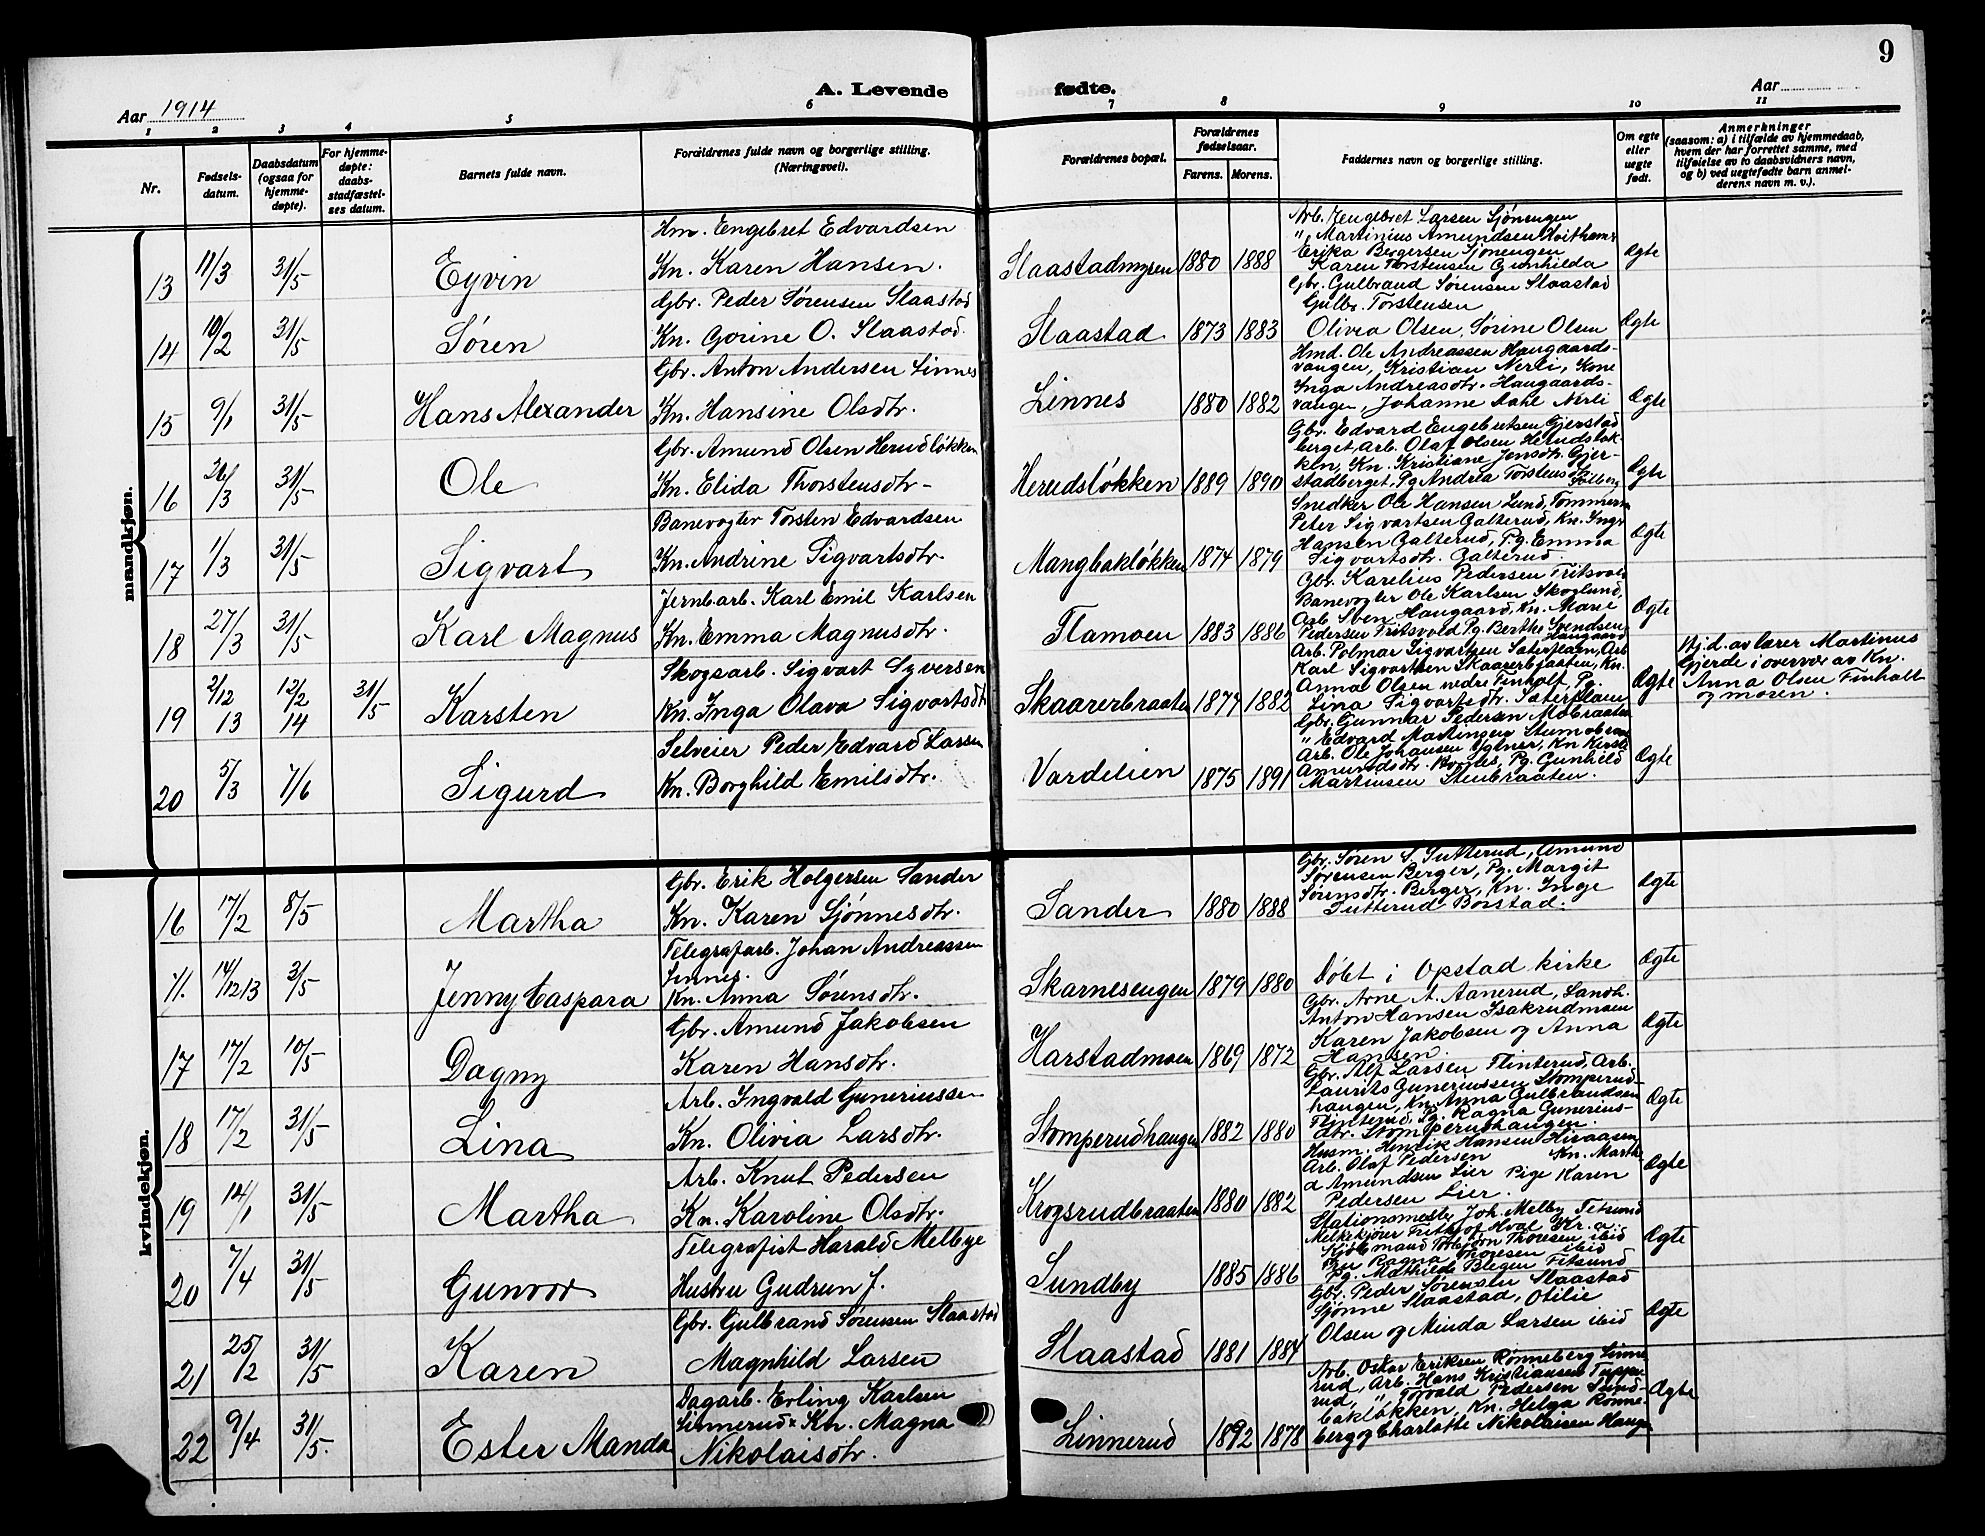 9
Aar 1914
A. Levende
fødte.
Aar
1 2 3 4 5 6 7 8 9 10 11
Nr.
Fødsels-
datum.
Daabsdatum
(ogsaa for
hjemme-
døpte).
For hjemme-
døpte:
daabs-
stadfæstel-
ses datum.
Barnets fulde navn.
Forældrenes fulde navn og borgerlige stilling.
(Næringsvei).
Forældrenes bopæl.
Forældrenes
fødselsaar.
Farens. Morens.
Faddernes navn og borgerlige stilling.
Om egte
eller
uegte
født.
Anmerkninger
(saasom: a) i tilfælde av hjemmedaab,
hvem der har forrettet samme, med
tilføielse av to daabsvidners navn,
og b) ved uegtefødte barn anmel-
derens navn m. v.).
mandkjøn.
13 11/3 31/5 Eyvin
Hm. Engebret Edvardsen
Kn. Karen Hansen.
Slaastadmyren 1880 1888
Arb. Engebret Larsen Sjønengen
" Martinius Amundsen
Erika Bergersen Sjønengen
Karen Torstensen Gunhilda
Ægte
14 10/2 31/5 Søren
Gbr. Peder Sørensen Slaastad
Kn. Gorine O. Slaastad.
Slaastad 1873 1883
Gbr. Gulbrand Sørensen Slaastad
Gulbr. Torstensen
Olivia Olsen, Sørine Olsen
Ægte
15 9/1 31/5 Hans Alexander
Gbr. Anton Andersen Linnes
Kn. Hansine Olsdtr.
Linnes 1880 1882
Hmd. Ole Andreassen Haugaards-
vangen, Kristian Nerli, Kone
Inga Andreasdtr. Haugaards-
vangen, Johanne Dahl Nerli
Ægte
16 26/3 31/5 Ole
Gbr. Amund Olsen Herudsløkken
Kn. Elida Thorstensdtr-
Herudsløkken 1889 1890
Gbr. Edvard Engebretsen Gjerstad
berget, Arb. Olaf Olsen Herudsløk-
ken, Kn. Kristiane Jensdtr. Gjer-
stadberget, Pg Andrea Torstensd.
Solberg
Ægte
17 1/3 31/5 Sigvart
Banevogter Torsten Edvardsen
Kn. Andrine Sigvartsdtr.
Mangbakløkken 1874 1879
Snedker Ole Hansen Lund, Tømmerm
Peter Sigvartsen Galterud, Kn. Inga
Hansen Galterud, Pg. Emma
Sigvartsdtr. Galterud.
Ægte
18 27/3 31/5 Karl Magnus
Jernbarb. Karl Emil Karlsen
Kn. Emma Magnusdtr.
Flamoen 1883 1886
Gbr. Karelius Pedersen Fritsvold
Banevogter Ole Karlsen Skoglund,
Arb. Sven Haugaard, Kn. Marie
Pedersen Fritsvold Pg. Berthe Svendsen
Haugaard
Ægte
19 2/12 13 12/2 14 31/5 Karsten
Skogsarb. Sigvart Syversen
Kn. Inga Olava Sigvartsdtr
Skaarerbraaten 1877 1882
Arb. Polmar Sigvartsen Sæterplaen, Arb
Karl Sigvartsen Skaarerbraaten, Kn.
Anna Olsen nedre Finholt, Pg.
Lina Sigvartsdtr. Sæterplaen
Ægte
Hj.d. av lærer Martinus
Gjerde i overvær av Kn.
Anna Olsen Finholt
og moren.
20 5/3 7/6 Sigurd
Selveier Peder Edvard Larsen
Kn. Borghild Emilsdtr.
Vardelien 1875 1891
Gbr. Gunnar Pedersen Mobraaten
" Edvard Martinsen
Arb. Ole Johansen
Amundsdtr. Pg. Gunhild
Martinsen Stenbraaten.
Ægte
kvindekjøn.
16 17/2 8/5 Martha
Gbr. Erik Holgersen Sander
Kn. Karen Sjønnesdtr.
Sander 1880 1888
Gbr. Søren S. Sutterud, Amund
Sørensen Berger, Pg. Margit
Sørensdtr. Berger, Kn. Inge
Sutterud Borstad.
Ægte
11. 14/12 13 3/5 Jenny Caspara
Telegrafarb. Johan Andreassen
Linnes.
Kn. Anna Sørensdtr.
Skarnesengen 1879 1880
Døbt i Opstad kirke
Ægte
17 17/2 10/5 Dagny
Gbr. Amund Jakobsen
Karen Hansdtr.
Harstadmoen 1869 1872
Gbr. Arne A. Aanerud, Landh.
Anton Hansen Isakrudmoen
Karen Jakobsen og Anna
Hansen.
Ægte
18 17/2 31/5 Lina
Arb. Ingvald Guneriussen
Kn. Olivia Larsdtr.
Stomperudhaugen 1882 1880
Gbr. Alf Larsen Flinterud, Arb.
Laurits Guneriussen Stomperud-
haugen, Kn. Anna Gulbrandsen
Flinterud, Pg. Ragna Gunerius-
dtr. Stomperudhaugen.
Ægte
19 14/1 31/5 Martha
Arb. Knut Pedersen
Kn. Karoline Olsdtr.
Krogsrudbraaten 1880 1882
Husm. Henrik Hansen Hivaasen
Arb. Olaf Pedersen Kn. Marthe
a Amundsen Lier Pige Karen
Pedersen Lier.
Ægte
20 7/4 31/5 Gunvor
Telegrafist Harald Melbye
Hustru Gudrun J.
Sundby 1885 1886
Stationsmester Joh. Melby Fetsund
Melkekjører Frithjof Hval Kr.a.
Kjøbmand Torbjørn Thoresen ibid
Fru Ragna Thoresen ibid
Pg. Mathilde Blegen Fetsund
Ægte
21 25/2 31/5 Karen
Gbr. Gulbrand Sørensen Slaastad
Magnhild Larsen
Slaastad 1881 1884
Gbr. Peder Sørensen Slaastad
Sjønne Slaastad, Otilie
Olsen og Minda Larsen ibid
Ægte
22 9/4 31/5. Ester Manda
Dagarb. Erling Karlsen
Linnerud x Kn. Magna
Nikolaisdtr.
Linnerud 1892 1878
Arb. Oskar Eriksen Rønneberg Linne
rud, Arb. Hans Kristiansen Tuppe
rud, " Torvald Pedersen Sund-
bakløkken, Kn. Helga Rønne-
berg og Charlotte Nikolaisen Haugen
Ægte